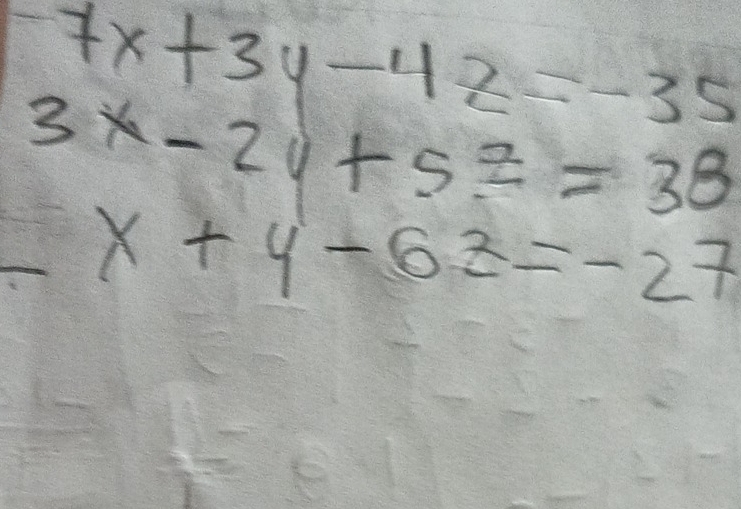 -7x+3y-4z=-35
3x-2y+5z=38
-x+y-6z=-27